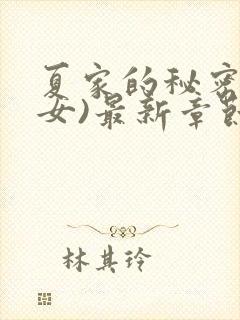 夏家的秘密
女)最新章節
林其玲